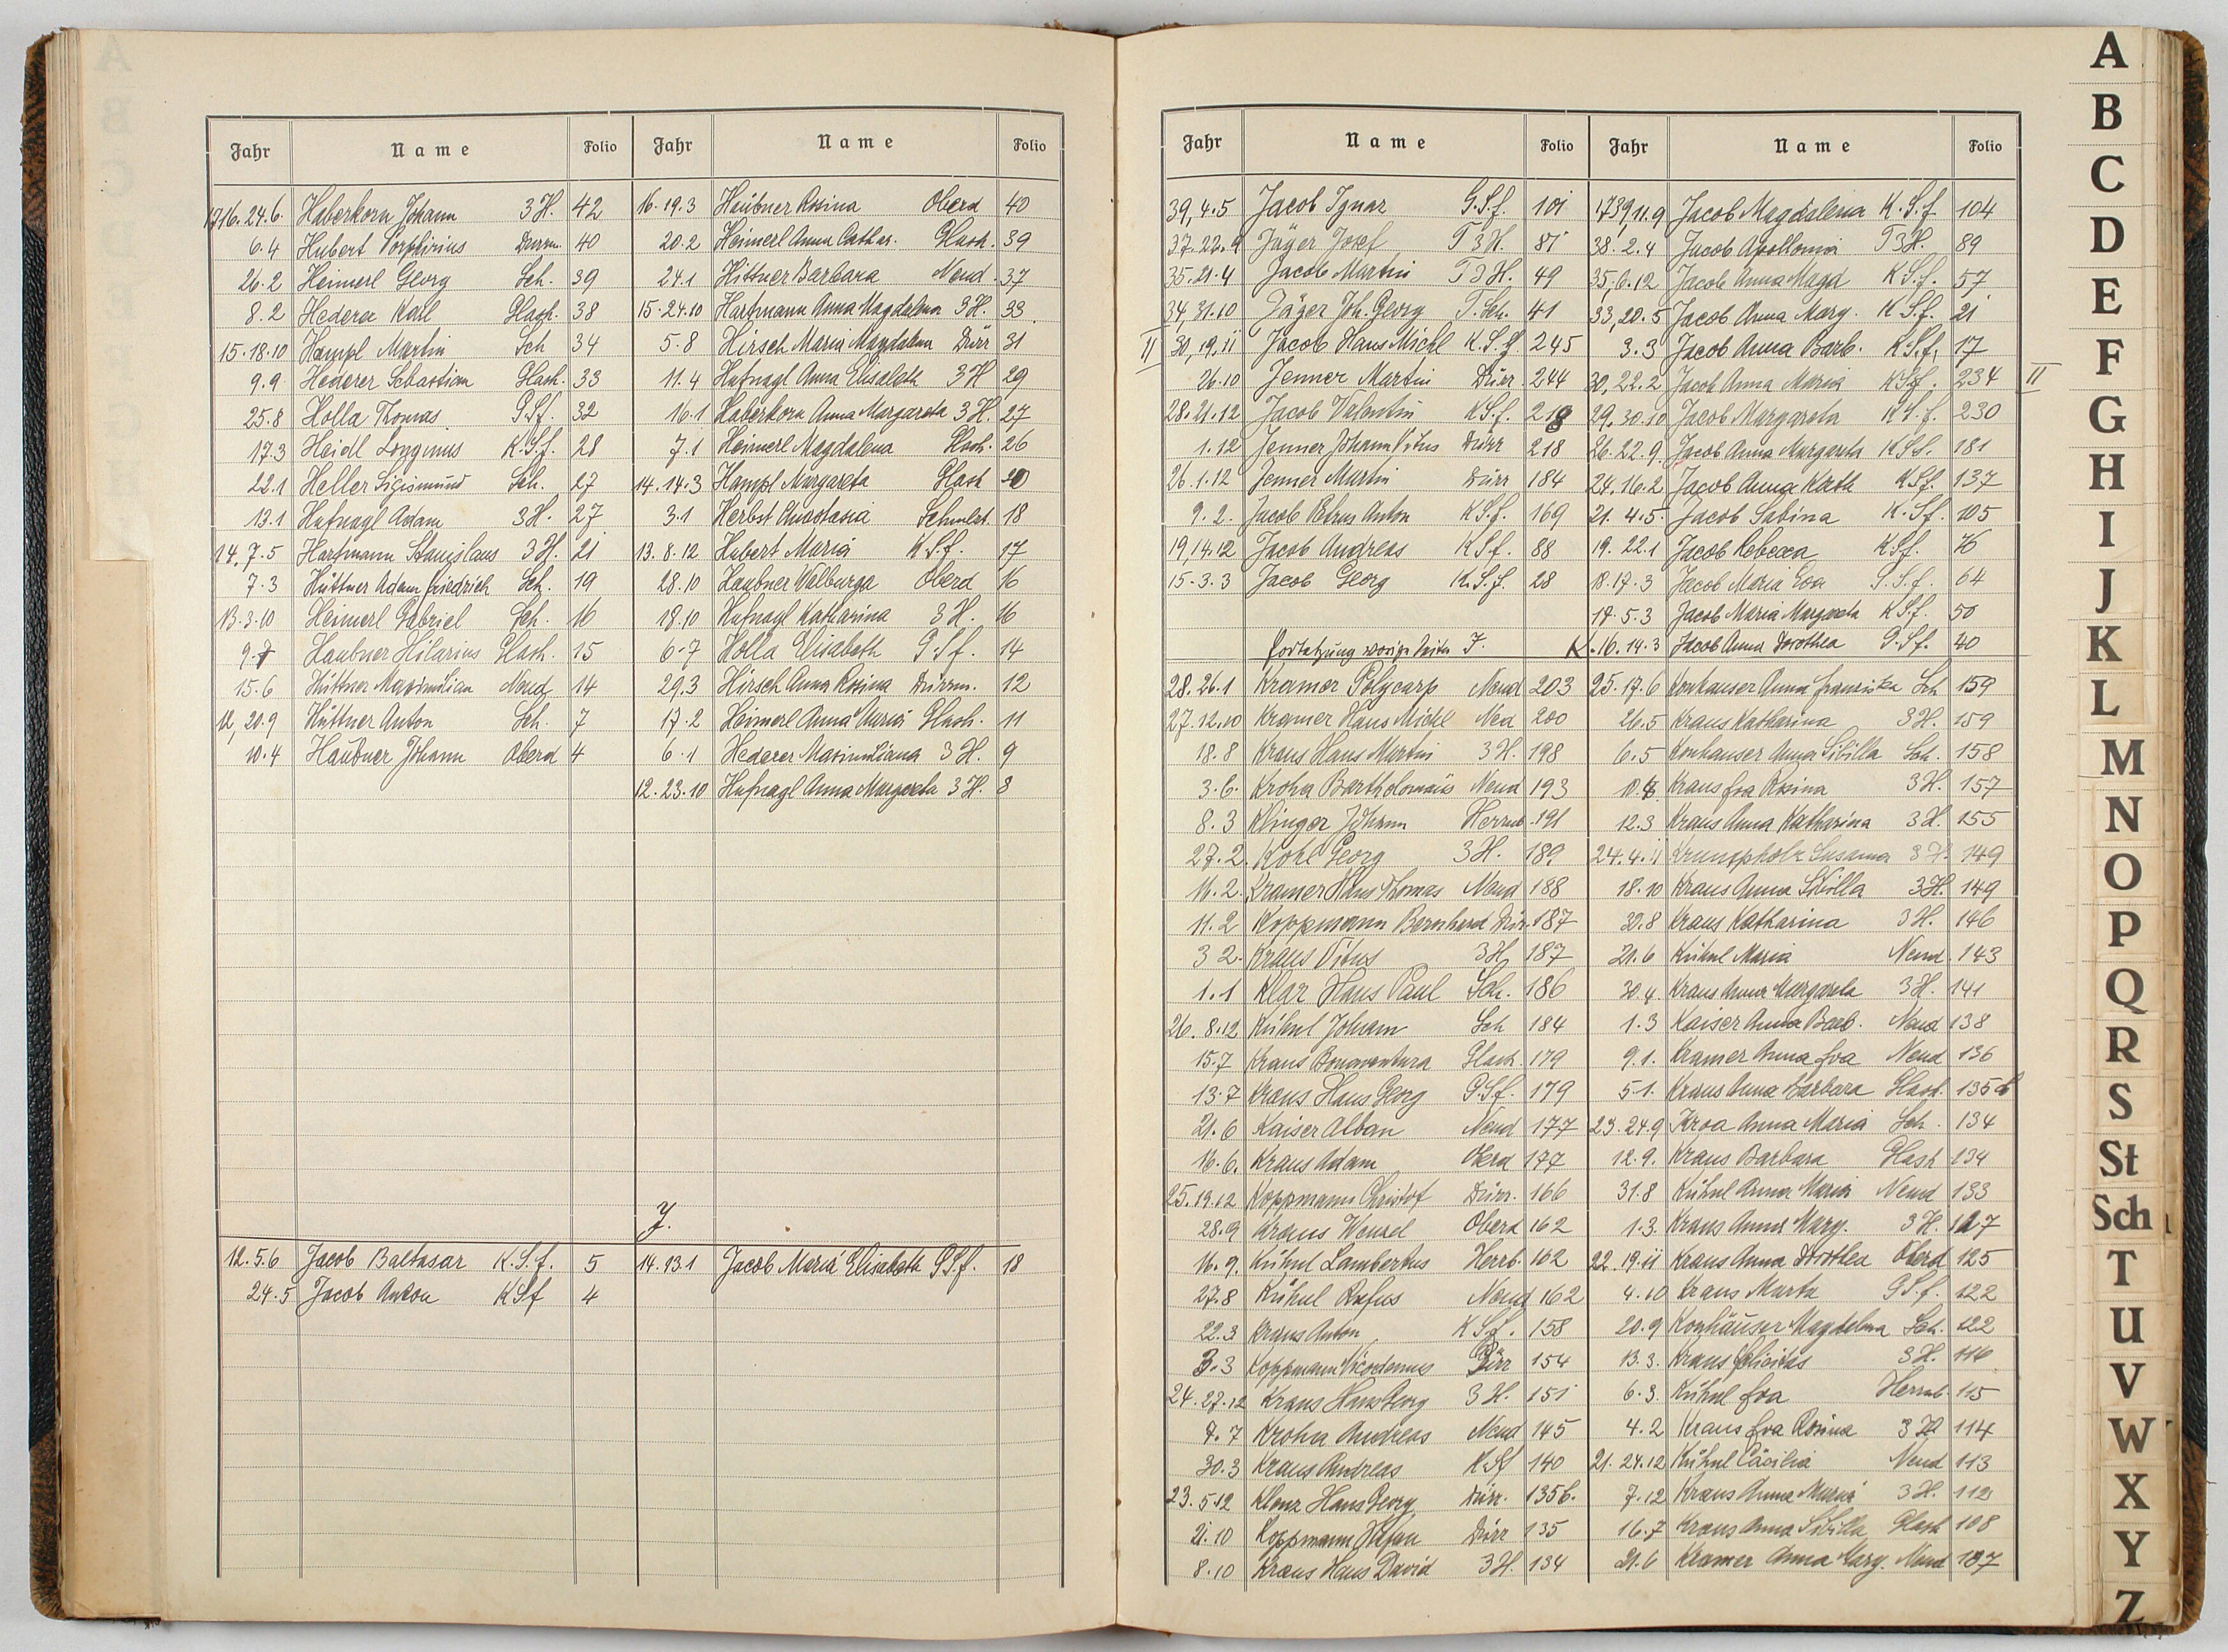 Jahr Name Folio Jahr Name Folio
1716.24.6. Haberkorn Johann 3H. 42
6.4 Hubert Porphirius Dürrm. 40
26.2 Heimerl Georg Sch. 39
8.2 Hederer Karl Glash. 38
15.18.10 Hampl Martin Sch 34
9.9. Hederer Sebastian Glash. 33
25.8 Holla Thomas G.Sf. 32
17.3 Heidl Longinus K.S.f. 28
22.1 Heller Sigismund Sch. 27
13.1 Hufnagl Adam 3H. 27
14.7.5 Hartmann Stanislaus 3H. 21
7.3 Hüttner Adam Friedrich Sch. 19
13.3.10 Heimerl Gabriel Sch. 16
9.7 Haubner Hilarius Glash. 15
15.6 Hüttner Maximilian Neud. 14
12,20.9 Hüttner Anton Sch. 7
10.4 Haubner Johann Oberd 4
16.19.3 Haubner Rosina Oberd 40
20.2 Heimerl Anna Cathar. Glash. 39
24.1 Hittner Barbara Neud. 37
15.24.10 Hartmann Anna Magdalena 3H. 33
5.8 Hirsch Maria Magdalen Dürr 31
11.4 Hufnagl Anna Elisabeth 3H 29
16.1 Haberkorn Anna Margareta 3H. 27
7.1 Heimerl Magdalena Glash. 26
14.14.3 Hampl Margareta Glash 20
3.1 Herbst Anastasia Schmelzt. 18
13.8.12 Hubert Maria K.S.f. 17
28.10 Haubner Walburga Oberd 16
18.10 Hufnagl Katharina 3H. 16
6.7 Holla Elisabeth G.S.f. 14
29.3 Hirsch Anna Rosina Dürrm. 12
17.2 Heimerl Anna Maria Glash. 11
6.1 Hederer Maximiliana 3H. 9
12.23.10 Hufnagl Anna Margareta 3H. 8
J.
12.5.6 Jacob Baltasar K.S.f. 5
24.5 Jacob Anton KSf 4
14.23.1 Jacob Maria Elisabeth G.S.f. 18
Jahr Name Folio Jahr Name Folio
39,4.5 Jacob Ignaz G.S.f. 101
37.22.9 Jäger Josef T3H. 81
35.21.4 Jacob Martin T3H. 49
34,31.10 Jäger Joh. Georg T.Sch. 41
II 30,19.11 Jacob Hans Michl K.S.f. 245
26.10 Jenner Martin Dürr. 244
28.21.12 Jacob Valentin KS.f. 218
1.12 Jenner Johann Vitus Dürr 218
26.1.12 Jenner Martin Dürr 184
9.2. Jacob Petrus Anton KS.f. 169
19,14.12 Jacob Andreas KS.f. 88
15.3.3 Jacob Georg K.S.f. 28
1739,11.9 Jacob Magdalena K.S.f 104
38.2.4 Jacob Apollonia T3H. 89
35,6.12 Jacob Anna Magd KS.f. 57
33,20.5 Jacob Anna Marg. K.S.f. 21
3.3 Jacob Anna Barb. K.S.f. 17
30,22.2 Jacob Anna Maria KSf. 234 II
29.30.10 Jacob Margareta KS.f. 230
26.22.9. Jacob Anna Margareta KS.f. 181
24.16.2 Jacob Anna Kath KSf. 137
21.4.5. Jacob Sabina K.Sf. 105
19.22.1 Jacob Rebecca KSf. 76
18.17.3 Jacob Maria Eva G.S.f. 64
17.5.3 Jacob Maria Margareta KSf. 50
16.14.3 Jacob Anna Dorothea G.Sf. 40
Fortsetzung vorige Seite J. K.
28.26.1 Kramer Polycarp Neud 203
27.12.10 Kramer Hans Michl Neud 200
18.8 Kraus Hans Martin 3H. 198
3.6. Kroha Bartholomäus Neud 193
8.3 Klinger Johann Herrnb. 191
27.2. Kohl Georg 3H. 189
16.2. Kramer Hans Thomas Neud 188
11.2 Koppmann Bernhard Dürr. 187
3 2. Kraus Vitus 3H 187
1.1 Klar Hans Paul Sch. 186
26.8.12 Kühnl Johann Sch 184
15.7 Kraus Bonaventura Glash. 179
13.7 Kraus Hans Georg G.Sf. 179
21.6 Kaiser Alban Neud 177
16.6. Kraus Adam Oberd 177
25.19.12 Koppmann Christof Dürr. 166
28.9 Kraus Wenzel Oberd 162
16.9. Kühnl Lambertus Herrb. 162
27.8 Kühnl Rufus Neud 162
22.3 Kraus Anton KS.f. 158
3.3 Koppmann Nicodemus Dürr 154
24.27.12 Kraus Hans Georg 3H. 151
7.7 Kroha Andreas Neud 145
30.3 Kraus Andreas K.Sf 140
23.5.12 Klenz Hans Georg Dürr. 135b.
21.10 Koppmann Stefan Dürr 135
8.10 Kraus Hans David 3H. 134
25.17.6 Konhauser Anna Franziska Sch 159
26.5 Kraus Katharina 3H. 159
6.5 Konhauser Anna Sibilla Sch. 158
Kraus Eva Rosina 3H. 157
12.3 Kraus Anna Katharina 3H. 155
24.4.11 Krumpholz Susanna 3H. 149
18.10 Kraus Anna Sibilla 3H. 149
30.8 Kraus Katharina 3H. 146
21.6 Kühnl Maria Neud. 143
30.4. Kraus Anna Margareta 3H. 141
1.3 Kaiser Anna Barb. Neud 138
9.1. Kramer Anna Eva Neud 136
5.1. Kraus Anna Barbara Glash. 135b
23.24.9 Kroa Anna Maria Sch. 134
12.9. Kraus Barbara Glash 134
31.8 Kühnl Anna Maria Neud 133
1.3. Kraus Anna Marg. 3H. 127
22.19.11 Kraus Anna Dorothea Oberd 125
4.10 Kraus Marta GS.f. 122
20.9 Konhäuser Magdalena Sch. 122
13.3. Kraus Felicitas 3H. 116
6.3. Kühnl Eva Herrnb. 115
4.2 Kraus Eva Rosina 3H 114
21.24.12 Kühnl Cäcilia Neud 113
7.12 Kraus Anna Maria 3H. 112
16.7 Kraus Anna Sibilla Glash 108
21.6 Kramer Anna Marg. Neud 107
A
B
C
D
E
F
G
H
I
J
K
L
M
N
O
P
Q
R
S
St
Sch
T
U
V
W
X
Y
Z